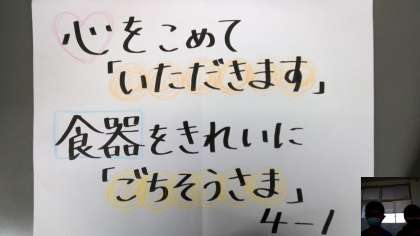 心をこめて
「いただきます」
食器をきれいに
「ごちそうさま」
4-1